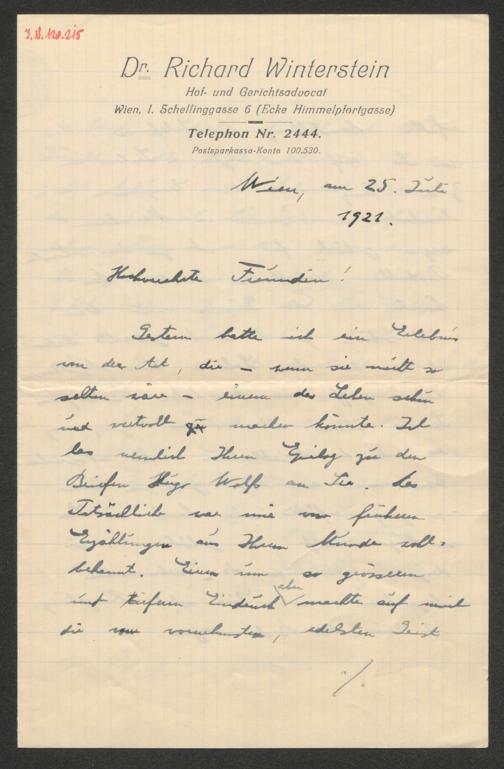 I.N. 120.215
Dr. Richard Winterstein
Hof- und Gerichtsadvocat
Wien, I. Schellinggasse 6 (Ecke Himmelpfortgasse)
Telephon Nr. 2444.
Postsparkassa-Konto 100.530.
Wien, am 25. Juli
1921.
Hochverehrte Freundin!
Gestern hatte ich ein Erlebnis
von der Art, die – wenn sie nicht so
selten wäre – einem das Leben schön
und wertvoll machen könnte. Ich
las nemlich Ihren Epilog zu den
Briefen Hugo Wolfs an Sie. Das
Tatsächliche war mir von früheren
Erzählungen aus Ihrem Munde wohl-
bekannt. Einen um so grösseren
und tiefern Eindruck aber machte auf mich
die vornehmsten, edelsten Geist
./.